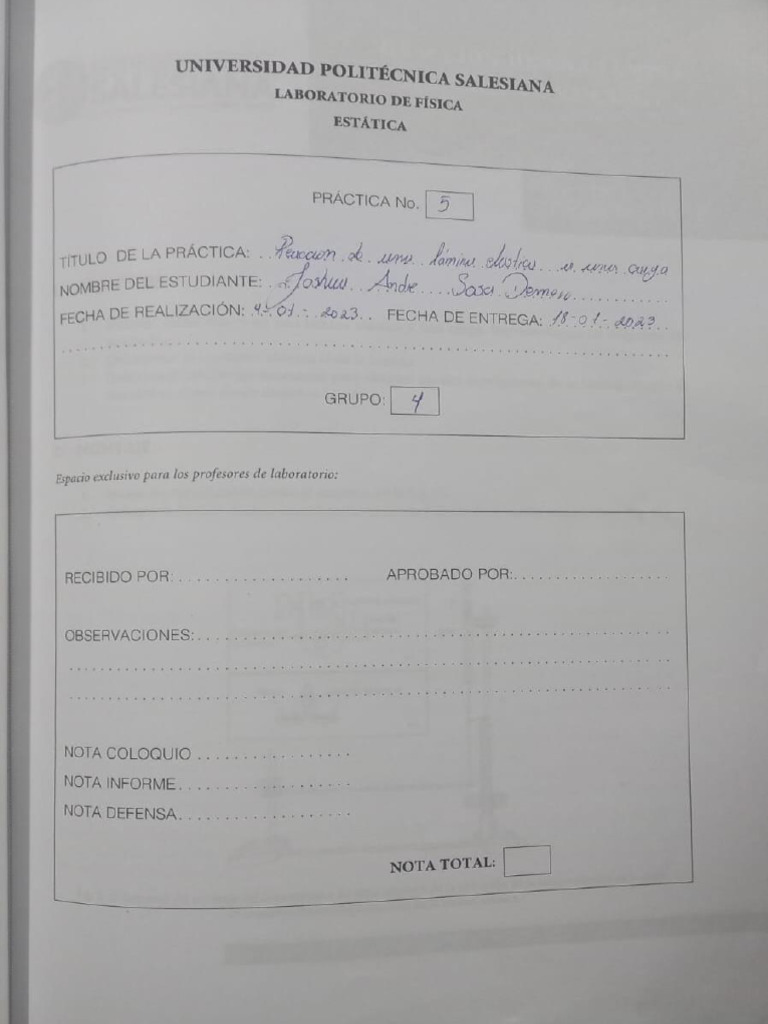 UNIVERSIDAD POLITÉCNICA SALESIANA
LABORATORIO DE FÍSICA
ESTÁTICA
PRÁCTICA No. 5
TÍTULO DE LA PRÁCTICA: de una lámina elastica a una carga
NOMBRE DEL ESTUDIANTE: Joshua Andre Sosa
FECHA DE REALIZACIÓN: 4-01-2023 FECHA DE ENTREGA: 18-01-2023
GRUPO: 4
Espacio exclusivo para los profesores de laboratorio:
RECIBIDO POR: APROBADO POR:
OBSERVACIONES:
NOTA COLOQUIO
NOTA INFORME
NOTA DEFENSA
NOTA TOTAL: